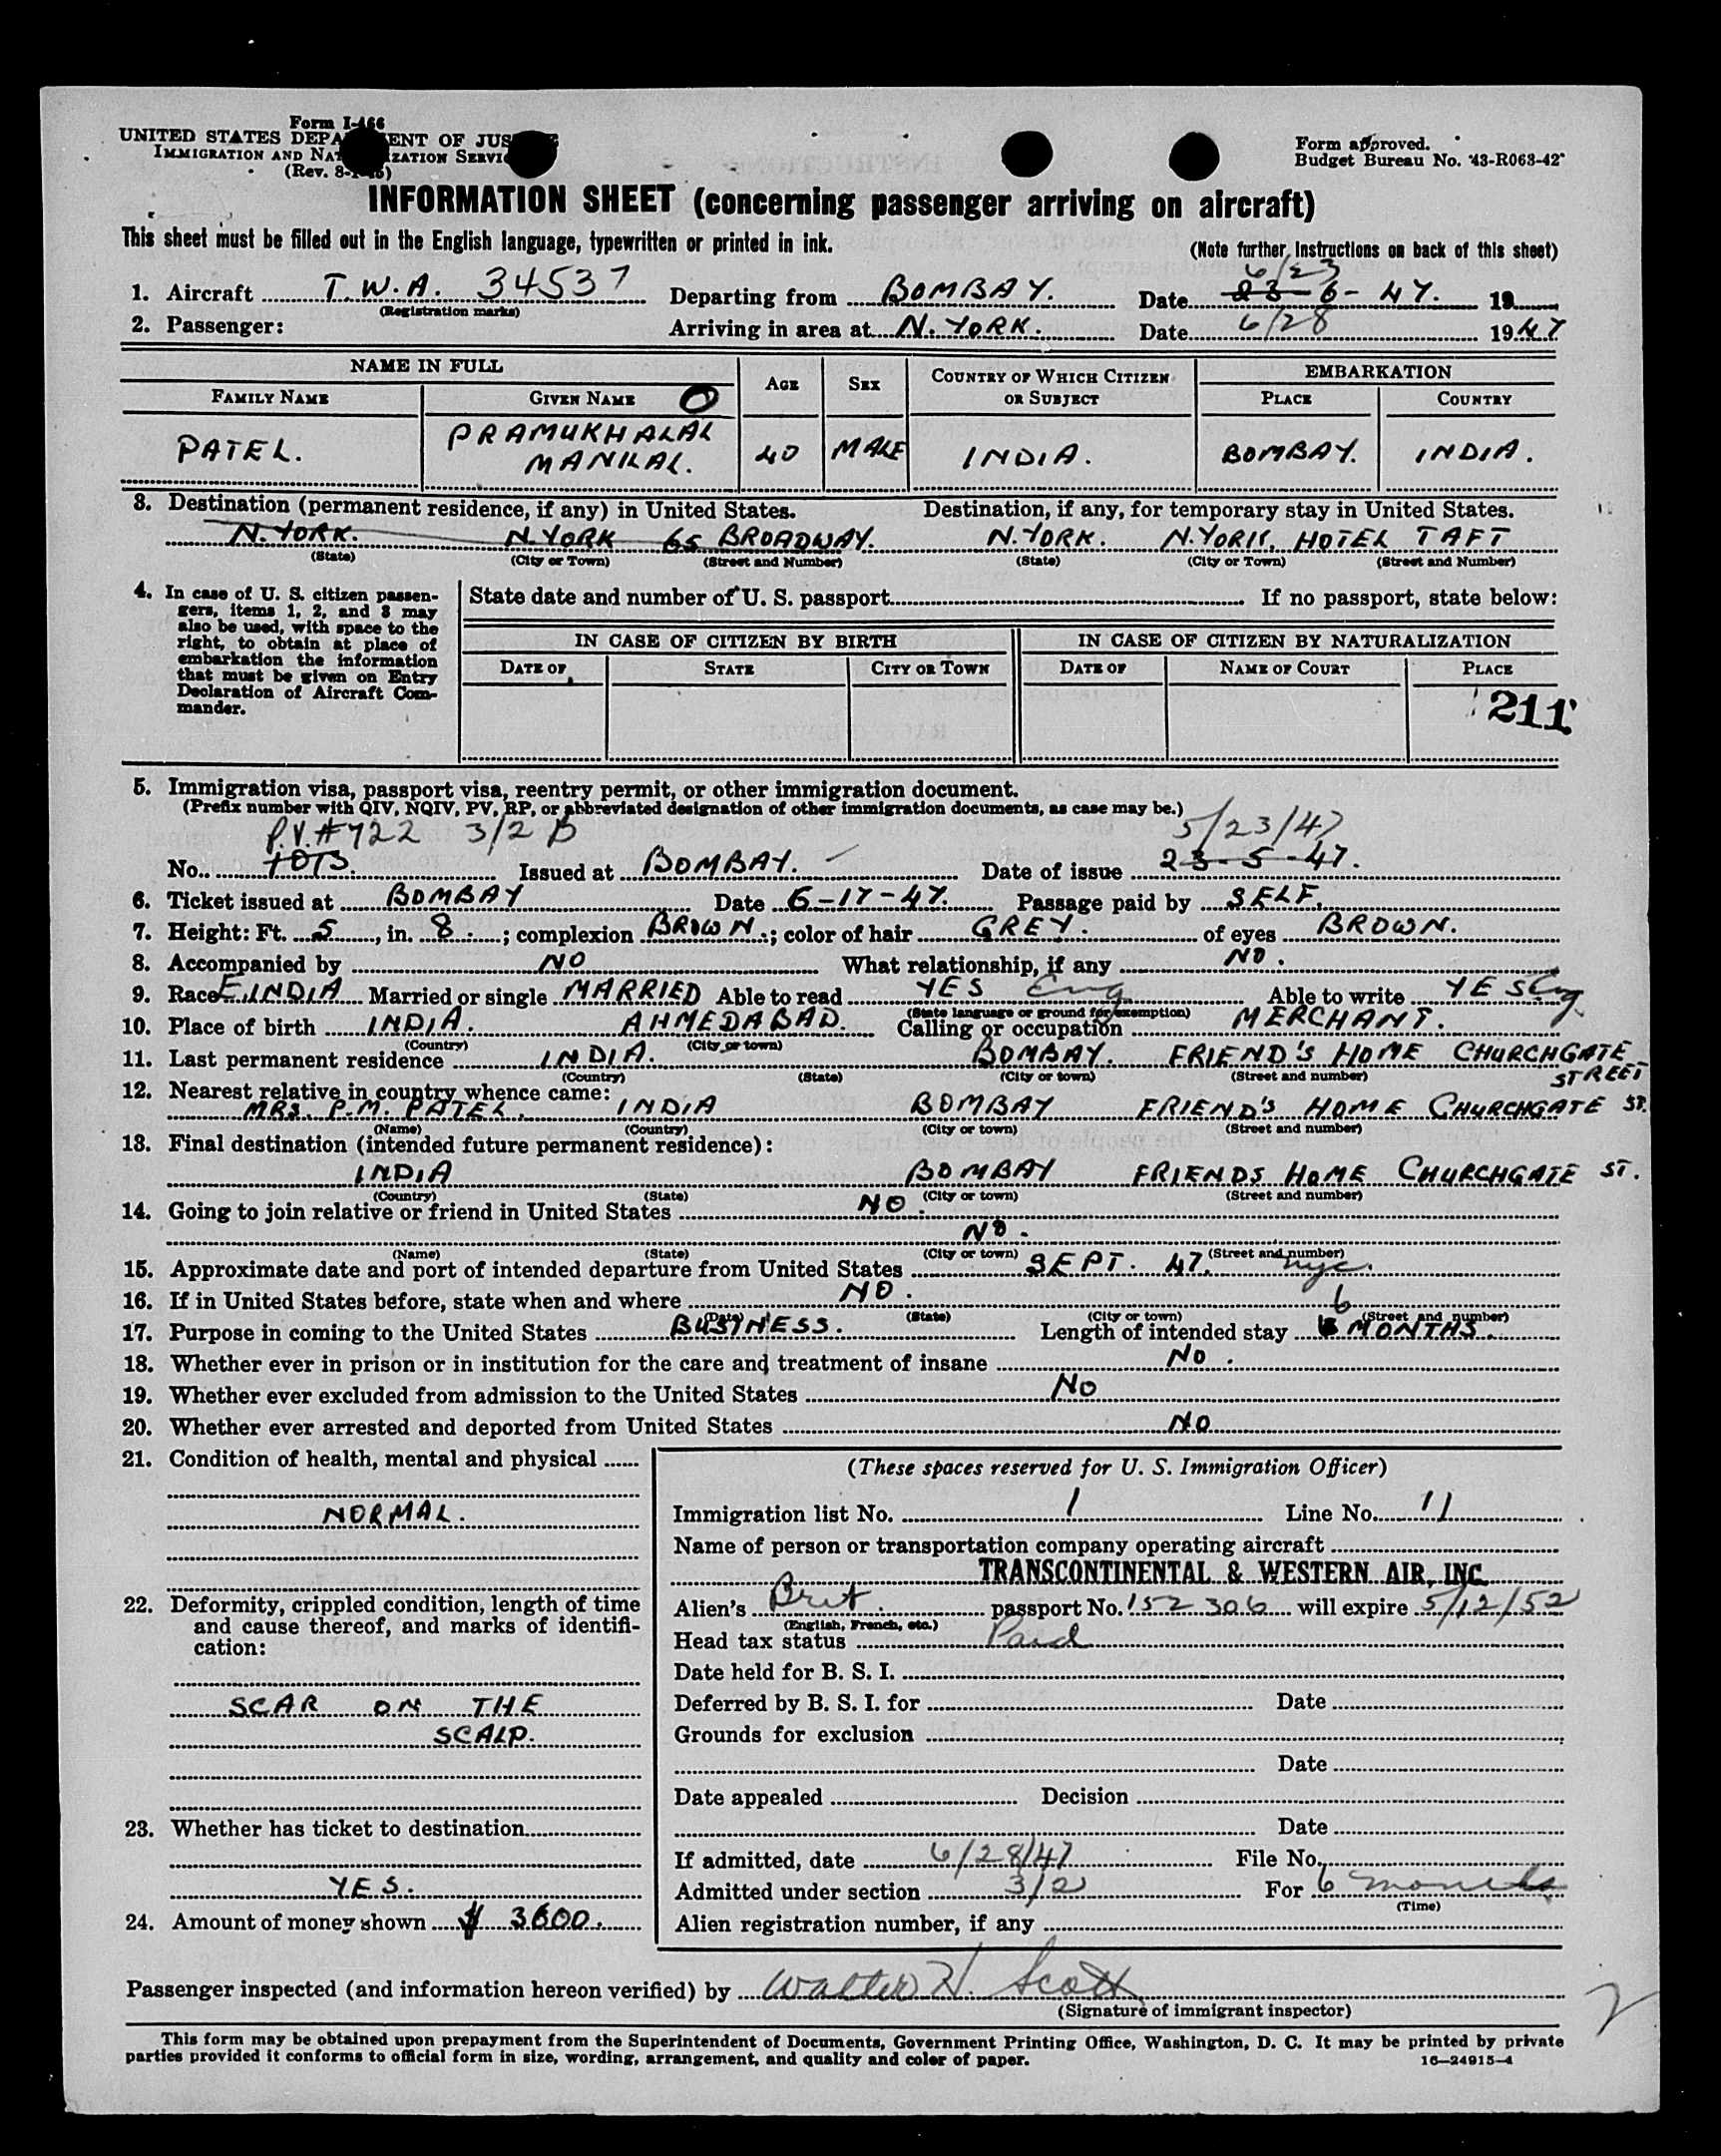 Form I-466
UNITED STATES DEPA ENT OF JUS
IMMIGRATION AND NAT ZATION SERVI
(Rev. 8-
Form approved.
Budget Bureau No. 43-R063-42
INFORMATION SHEET (concerning passenger arriving on aircraft)
This sheet must be filled out in the English language, typewritten or printed in ink.
(Note further instructions on back of this sheet)
6/23
1. Aircraft T.W.A. 34537 Departing from BOMBAY. Date 23-6-47. 19
(Registration marks)
2. Passenger: Arriving in area at N. YORK. Date 6/28 1947
NAME IN FULL AGE SEX COUNTRY OF WHICH CITIZEN OR SUBJECT EMBARKATION
FAMILY NAME GIVEN NAME PLACE COUNTRY
PATEL. PRAMUKHALAL MANILAL. 40 MALE INDIA. BOMBAY. INDIA.
3. Destination (permanent residence, if any) in United States. Destination, if any, for temporary stay in United States.
N. YORK. N. YORK 65 BROADWAY. N. YORK. N. YORK, HOTEL TAFT
(State) (City or Town) (Street and Number) (State) (City or Town) (Street and Number)
4. In case of U. S. citizen passen-
gers, items 1, 2, and 3 may
also be used, with space to the
right, to obtain at place of
embarkation the information
that must be given on Entry
Declaration of Aircraft Com-
mander.
State date and number of U. S. passport If no passport, state below:
IN CASE OF CITIZEN BY BIRTH IN CASE OF CITIZEN BY NATURALIZATION
DATE OF STATE CITY OR TOWN DATE OF NAME OF COURT PLACE
211
5. Immigration visa, passport visa, reentry permit, or other immigration document.
(Prefix number with QIV, NQIV, PV, RP, or abbreviated designation of other immigration documents, as case may be.)
P.V. #722 3/2 B 5/23/47
No. Issued at BOMBAY. Date of issue 23-5-47.
6. Ticket issued at BOMBAY Date 6-17-47. Passage paid by SELF.
7. Height: Ft. 5, in. 8.; complexion BROWN.; color of hair GREY. of eyes BROWN.
8. Accompanied by NO What relationship, if any NO.
9. Race E. INDIA Married or single MARRIED Able to read YES Eng Able to write YES Eng.
(State language or ground for exemption)
10. Place of birth INDIA. AHMEDABAD. Calling or occupation MERCHANT.
(Country) (City or town)
11. Last permanent residence INDIA. BOMBAY. FRIEND'S HOME CHURCHGATE STREET
(Country) (State) (City or town) (Street and number)
12. Nearest relative in country whence came:
MRS. P.M. PATEL, INDIA BOMBAY FRIEND'S HOME CHURCHGATE ST.
(Name) (Country) (City or town) (Street and number)
13. Final destination (intended future permanent residence):
INDIA BOMBAY FRIENDS HOME CHURCHGATE ST.
(Country) (State) (City or town) (Street and number)
14. Going to join relative or friend in United States NO.
NO.
(Name) (State) (City or town) (Street and number)
15. Approximate date and port of intended departure from United States SEPT. 47. nyc.
16. If in United States before, state when and where NO.
(Date) (State) (City or town) (Street and number)
17. Purpose in coming to the United States BUSINESS. Length of intended stay 6 MONTHS.
18. Whether ever in prison or in institution for the care and treatment of insane NO.
19. Whether ever excluded from admission to the United States NO
20. Whether ever arrested and deported from United States NO
21. Condition of health, mental and physical
NORMAL.
22. Deformity, crippled condition, length of time
and cause thereof, and marks of identifi-
cation:
SCAR ON THE
SCALP.
23. Whether has ticket to destination
YES.
24. Amount of money shown $ 3600.
(These spaces reserved for U. S. Immigration Officer)
Immigration list No. 1 Line No. 11
Name of person or transportation company operating aircraft
TRANSCONTINENTAL & WESTERN AIR, INC
Alien's Brit. passport No. 152306 will expire 5/12/52
(English, French, etc.)
Head tax status Paid
Date held for B. S. I.
Deferred by B. S. I. for Date
Grounds for exclusion
Date
Date appealed Decision
Date
If admitted, date 6/28/47 File No.
Admitted under section 3/2 For 6 months
(Time)
Alien registration number, if any
Passenger inspected (and information hereon verified) by Walter H. Scott
(Signature of immigrant inspector)
2
This form may be obtained upon prepayment from the Superintendent of Documents, Government Printing Office, Washington, D. C. It may be printed by private
parties provided it conforms to official form in size, wording, arrangement, and quality and color of paper.
16—24915-4